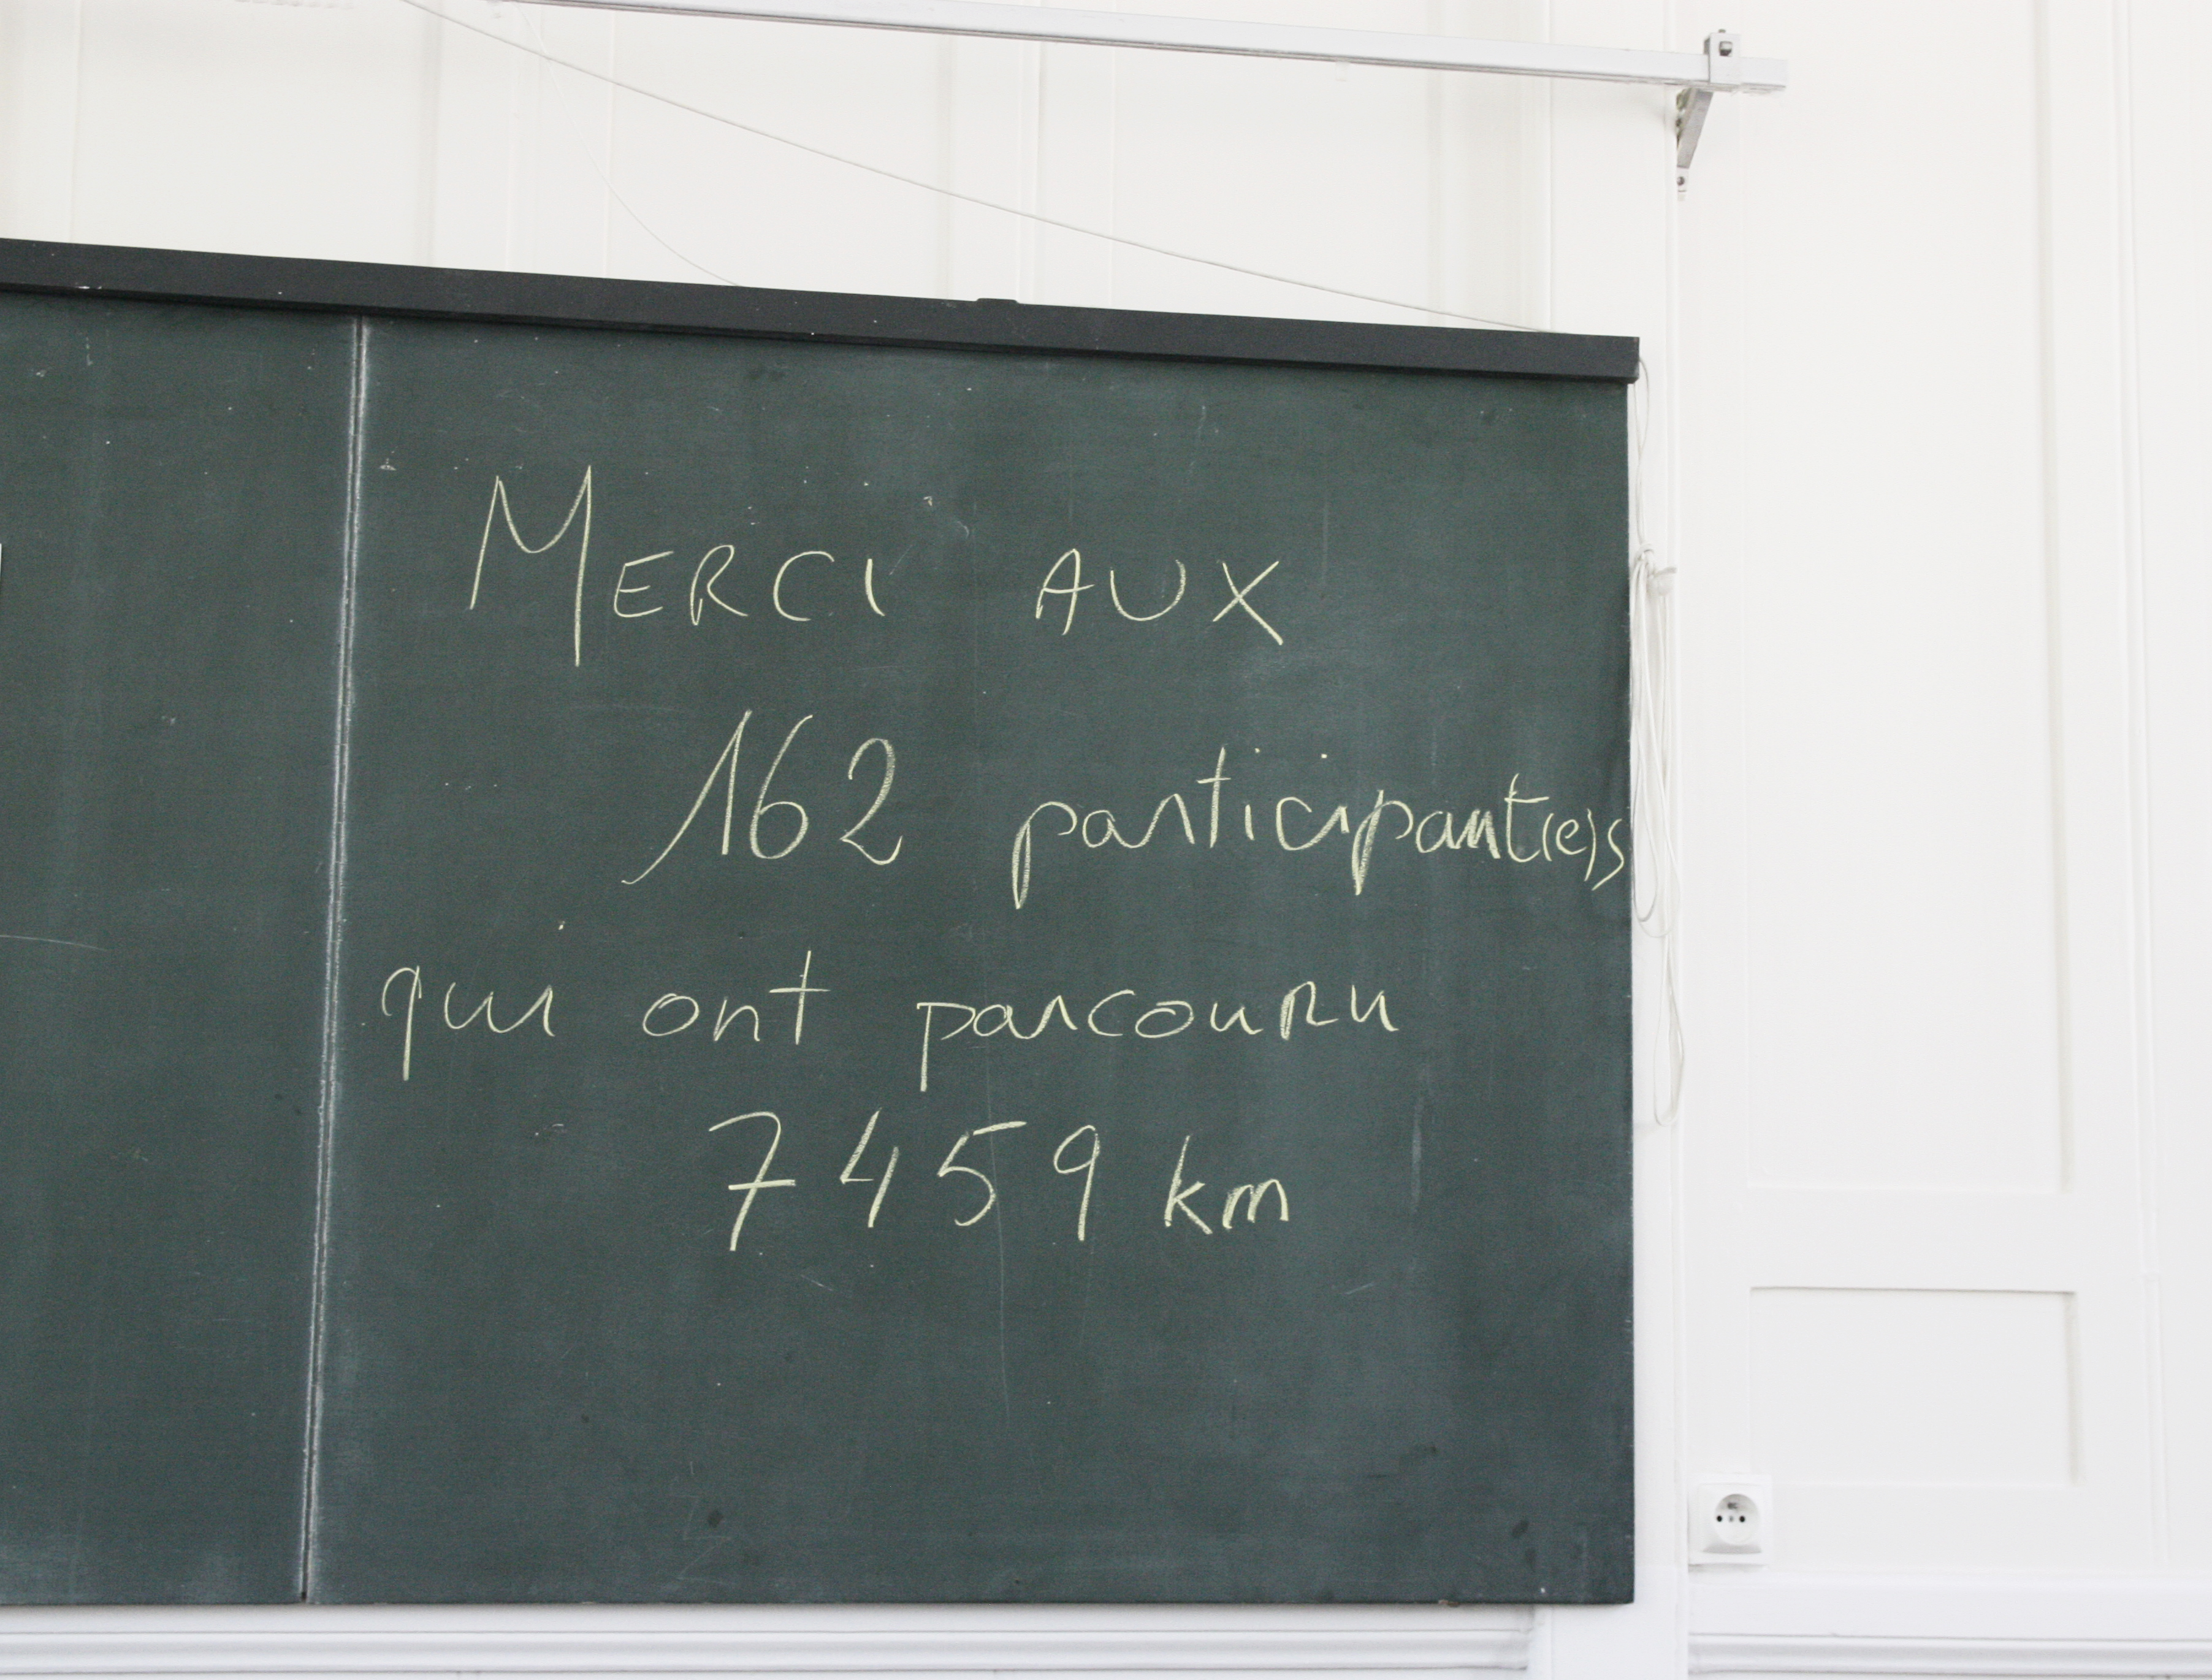 MERCI AUX
162 participant(e)s
qui ont parcouru
7459 km